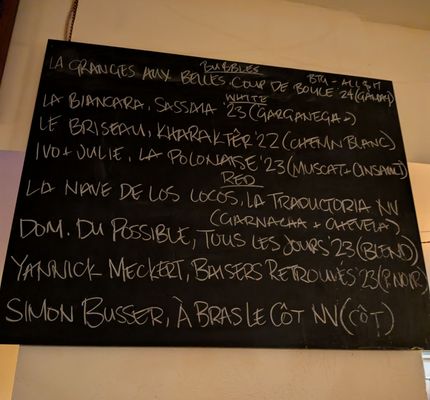 BUBBLES
LA GRANGES AUX BELLES, COUP DE BOULE '24 (GAMAY)
WHITE
LA BIANCARA, SASSAIA '23 (GARGANEGA+)
LE BRISEAU, KHARAKTÊR '22 (CHENIN BLANC)
IVO + JULIE, LA POLONAISE '23 (MUSCAT + CINSAULT)
RED
LA NAVE DE LOS LOCOS, LA TRADUCTORIA NV
(GARNACHA +
DOM. DU POSSIBLE, TOUS LES JOURS '23 (BLEND)
YANNICK MECKERT, BAISERS RETROUVÉS '23 (P. NOIR)
SIMON BUSSER, À BRAS LE CÔT NV (CÔT)